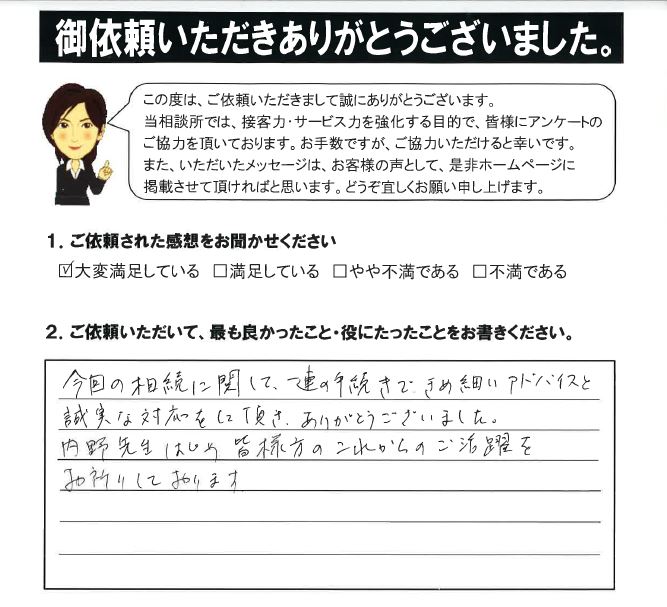 御依頼いただきありがとうございました。
この度は、ご依頼いただきまして誠にありがとうございます。
当相談所では、接客力・サービス力を強化する目的で、皆様にアンケートの
ご協力を頂いております。お手数ですが、ご協力いただけると幸いです。
また、いただいたメッセージは、お客様の声として、是非ホームページに
掲載させて頂ければと思います。どうぞ宜しくお願い申し上げます。
1. ご依頼された感想をお聞かせください
☑大変満足している □満足している □やや不満である □不満である
2. ご依頼いただいて、最も良かったこと・役にたったことをお書きください。
今回の相続に関して、一連の手続きで、きめ細いアドバイスと
誠実な対応をして頂き、ありがとうございました。
内野先生はじめ皆様方のこれからのご活躍を
お祈りしております